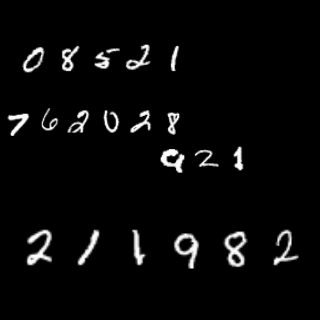 08521
762028
921
211982